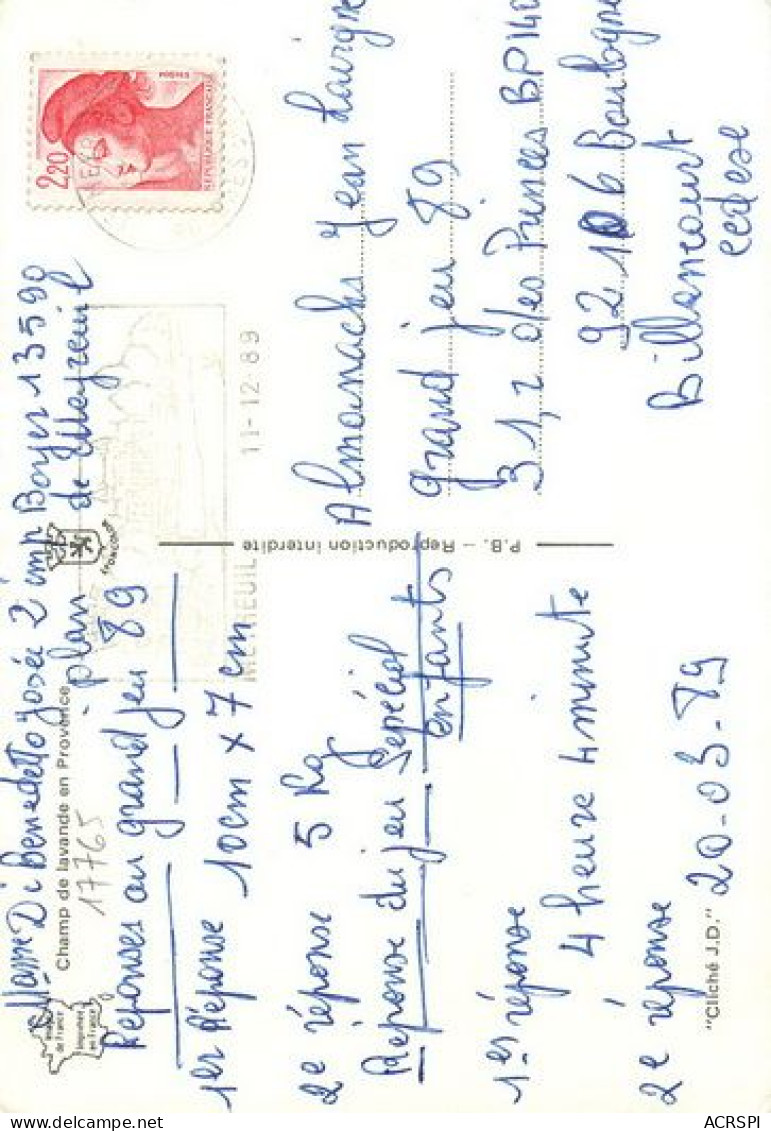 Mme Di Benedetto Josée 2 imp Boyer 13590
plan de Meyreuil
Réponses au grand jeu 89
1er Réponse 10cm x 7cm
2e réponse 5 Kg
Réponse du jeu Spécial
enfants
1er réponse
4 heure 4 minute
2e réponse 20-03-89
Champ de lavande en Provence
17765
Imprimé
en France
P.B. – Reproduction interdite
"Cliché J.D."
2,20
REPUBLIQUE FRANÇAISE
11-12.89
Almanachs Jean Lavigne
grand jeu 89
31, r des Princes BP 140
92106 Boulogne
Billancourt
cedex
ACRSPI